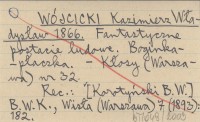 WÓJCICKI Kazimierz Wła-
dysław 1866. Fantastyczne
postacie ludowe. Boginka-
-płaczka. - Kłosy (Warsza-
wa) nr 32.
Rec.: [Korotyński B.W.]
B.W.K., Wisła (Warszawa) 7 (1893):
182.